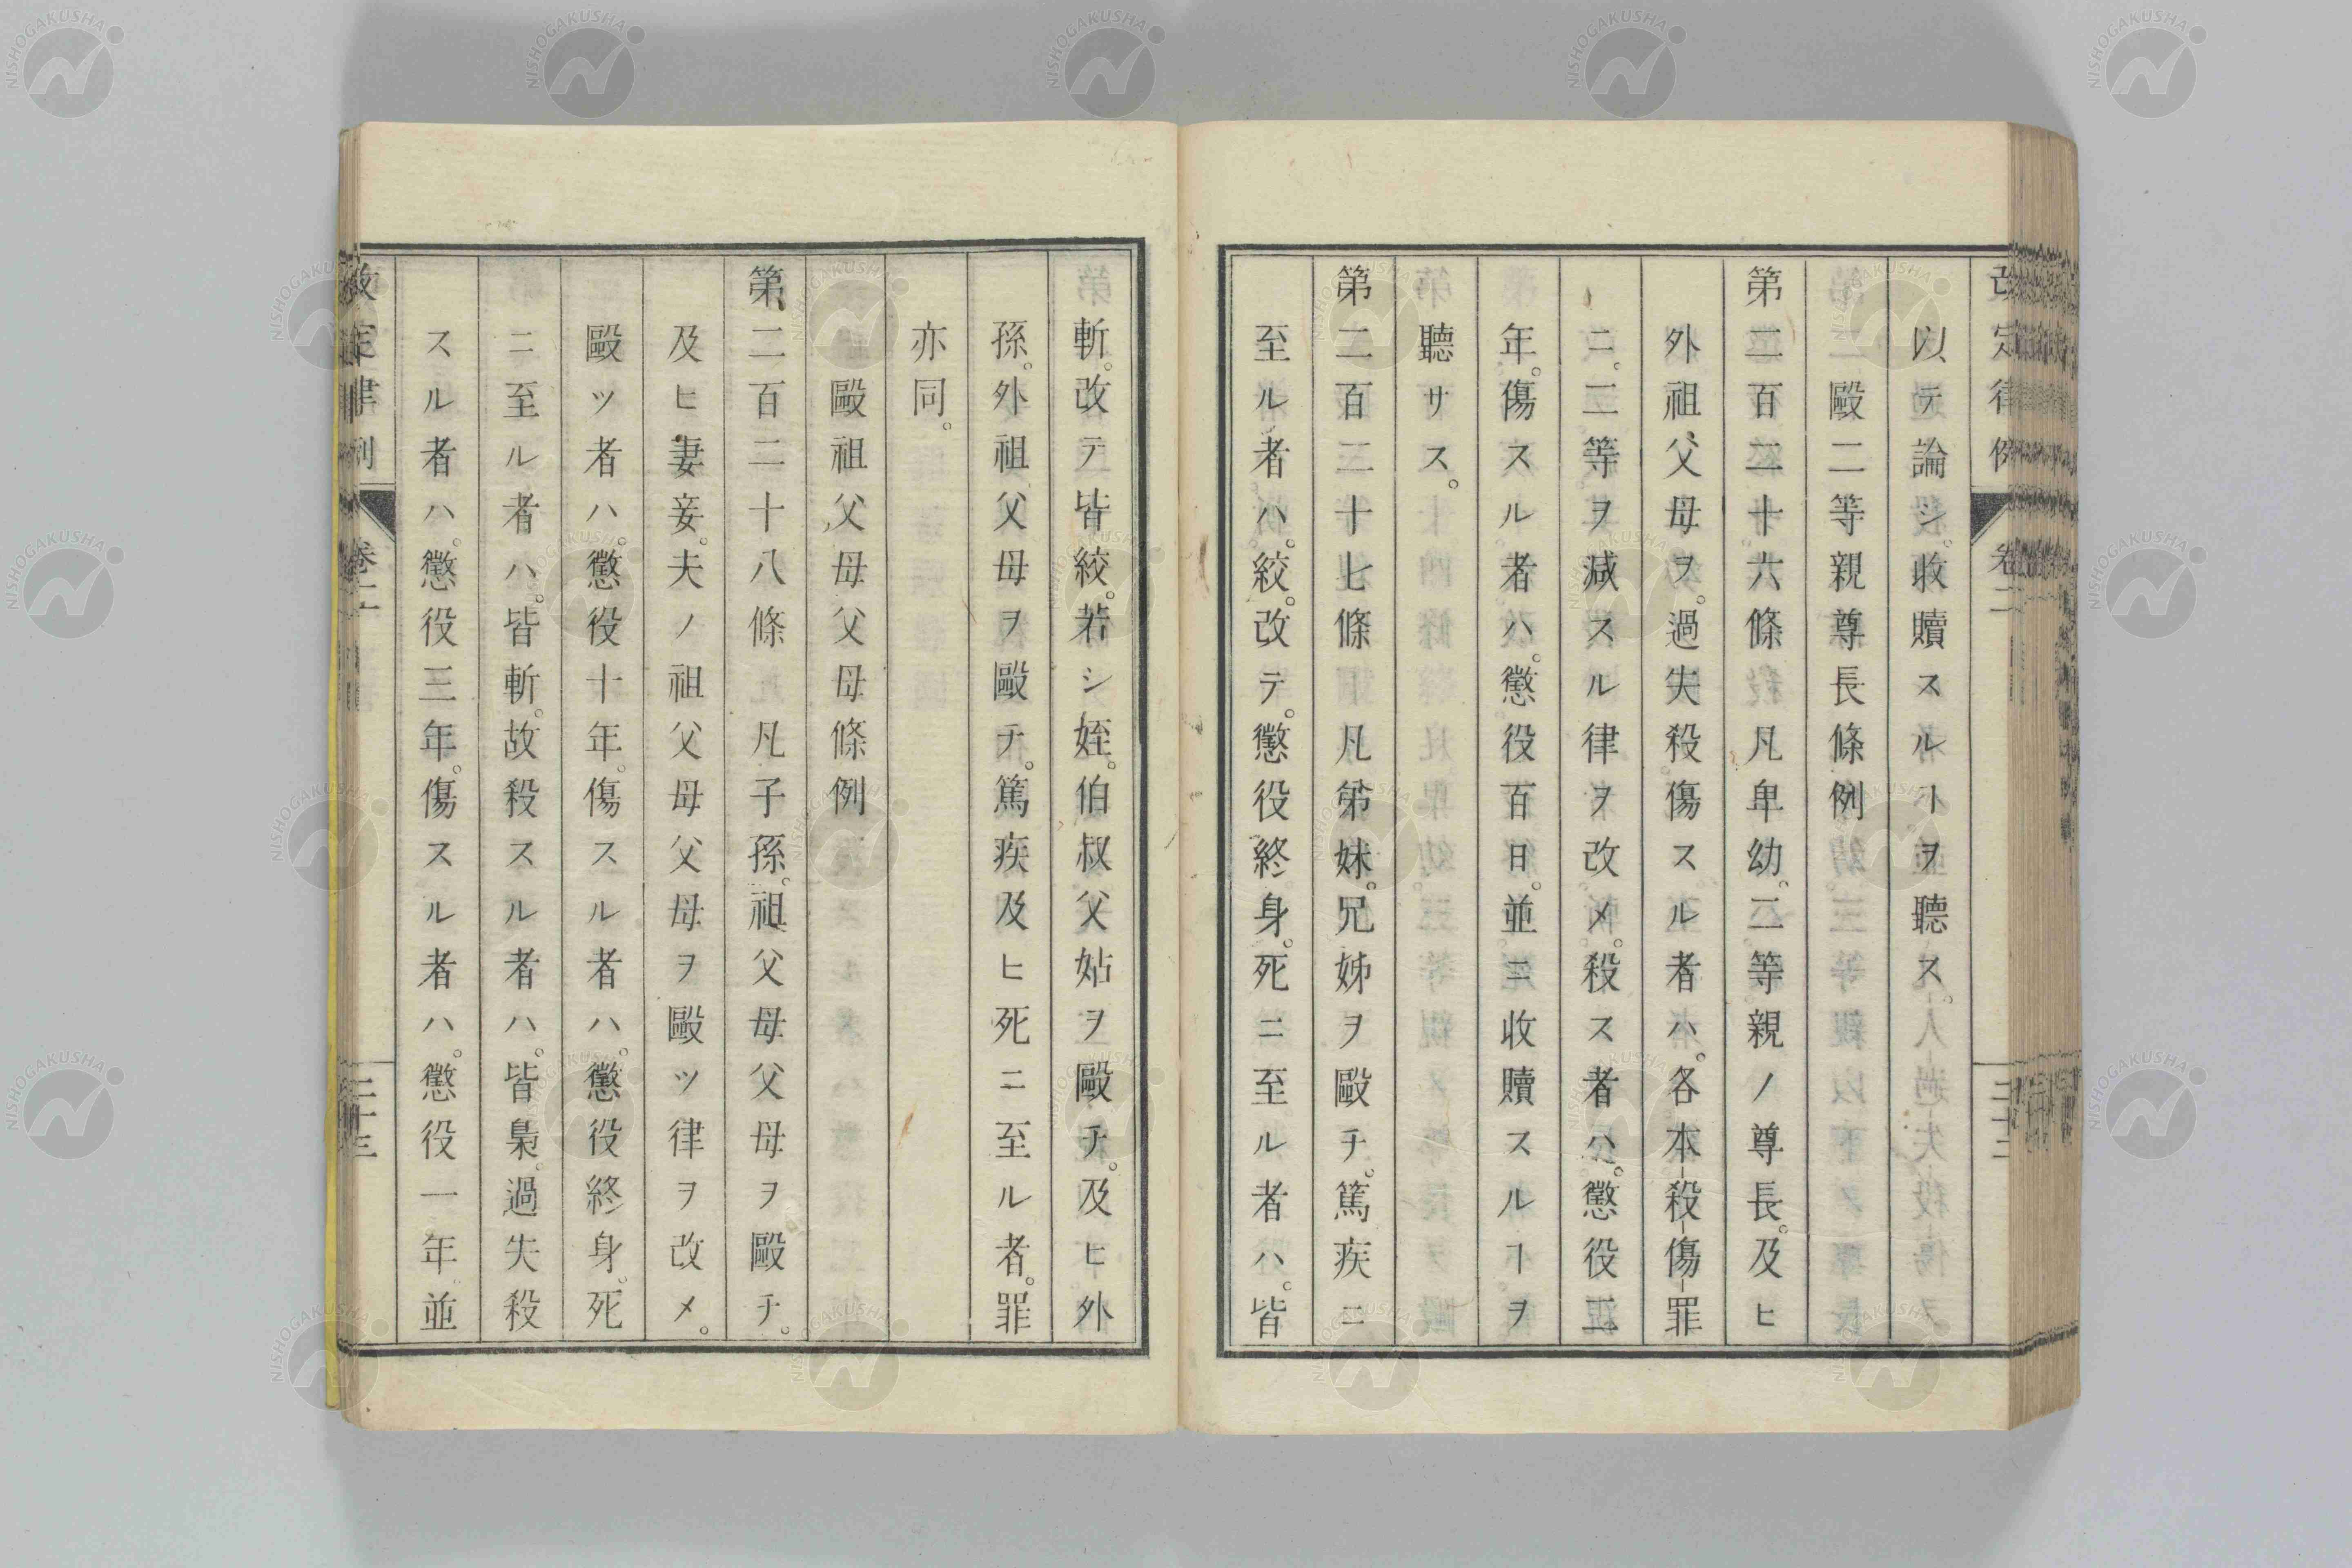 改定律例 卷二 二十三
以テ論シ。收贖スルヿヲ聽ス。
毆二等親尊長條例
第二百二十六條 凡卑幼。二等親ノ尊長。及ヒ
外祖父母ヲ。過失殺傷スル者ハ。各本殺傷罪
ニ。二等ヲ減スル律ヲ改メ。殺ス者ハ。懲役二
年。傷スル者ハ。懲役百日。並ニ收贖スルヿヲ
聽サス。
第二百二十七條 凡弟妹。兄姊ヲ毆チ。篤疾ニ
至ル者ハ。絞。改テ。懲役終身。死ニ至ル者ハ。皆
斬。改テ皆絞。若シ姪。伯叔父姑ヲ毆チ。及ヒ外
孫。外祖父母ヲ毆チ。篤疾及ヒ死ニ至ル者。罪
亦同。
毆祖父母父母條例
第二百二十八條 凡子孫。祖父母父母ヲ毆チ。
及ヒ妻妾。夫ノ祖父母父母ヲ毆ツ律ヲ改メ。
毆ツ者ハ。懲役十年。傷スル者ハ。懲役終身。死
ニ至ル者ハ。皆斬。故殺スル者ハ。皆梟。過失殺
スル者ハ。懲役三年。傷スル者ハ。懲役一年。並
改定律例 卷二 二十三
NISHOGAKUSHA